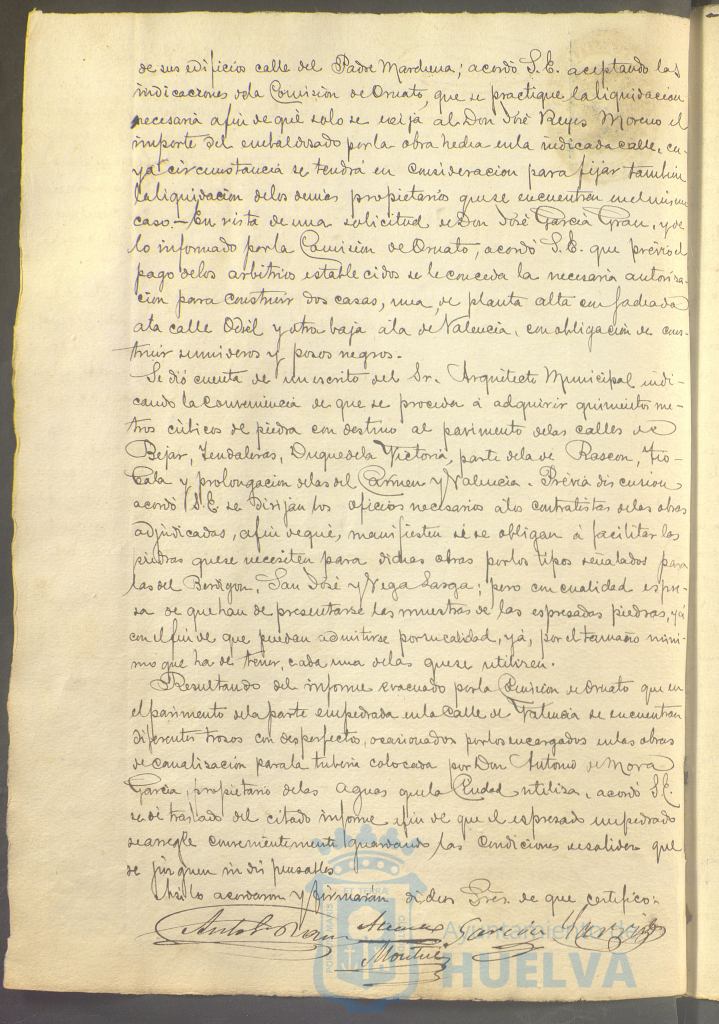 de sus edificios calle del Padre Marchena; acordó S.E. aceptando las
indicaciones de la Comision de Ornato, que se practique la liquidacion
necesaria afin de que solo se exija al Don José Reyes Moreno el
importe del embaldosado por la obra hecha en la indicada calle, cu-
ya circunstancia se tendrá en consideracion para fijar tambien
la liquidacion de los demás propietarios que se encuentren en el mismo
caso.— En vista de una solicitud de Don José García Grau, y de
lo informado por la Comision de Ornato, acordó S.E. que prévio el
pago de los arbitrios establecidos se le conceda la necesaria autoriza-
cion para construir dos casas, una, de planta alta con fachada
a la calle Odiel y otra baja á la de Valencia, con obligacion de cons-
truir sumideros y pozos negros.
Se dió cuenta de un escrito del Sr. Arquitecto Municipal indi-
cando la conveniencia de que se proceda á adquirir quinientos me-
tros cúbicos de piedra con destino al pavimento de las calles de
Bejar, Tendaleras, Duque de la Victoria, parte de la de Rascon, Tio-
Cala y prolongacion de las del Carmen y Valencia. Prévia discusion
acordó S.E. se dirijan los oficios necesarios á los contratistas de las obras
adjudicadas, afin de que, manifiesten si se obligan á facilitar las
piedras que se necesiten para dichas obras por los tipos señalados para
las del Berdigon, San José y Vega Larga; pero con cualidad espre-
sa de que han de presentarse las muestras de las espresadas piedras, yá
con el fin de que puedan admitirse por su calidad, yá, por el tamaño míni-
mo que ha de tener, cada una de las que se utilicen.
Resultando del informe evacuado por la Comision de Ornato que en
el pavimento de la parte empedrada en la calle de Valencia se encuentran
diferentes trozos con desperfectos, ocasionados por los encargados en las obras
de canalizacion para la tuberia colocada por Don Antonio de Mora
García, propietario de las aguas que la Ciudad utiliza, acordó S.E.
se dé traslado del citado informe afin de que el espresado empedrado
se arregle convenientemente guardando las condiciones de solidez que
se juzguen indispensables.
Así lo acordaron y firmarán dichos Sres. de que certifico:
García
Montiel
Ayuntamiento de
HUELVA